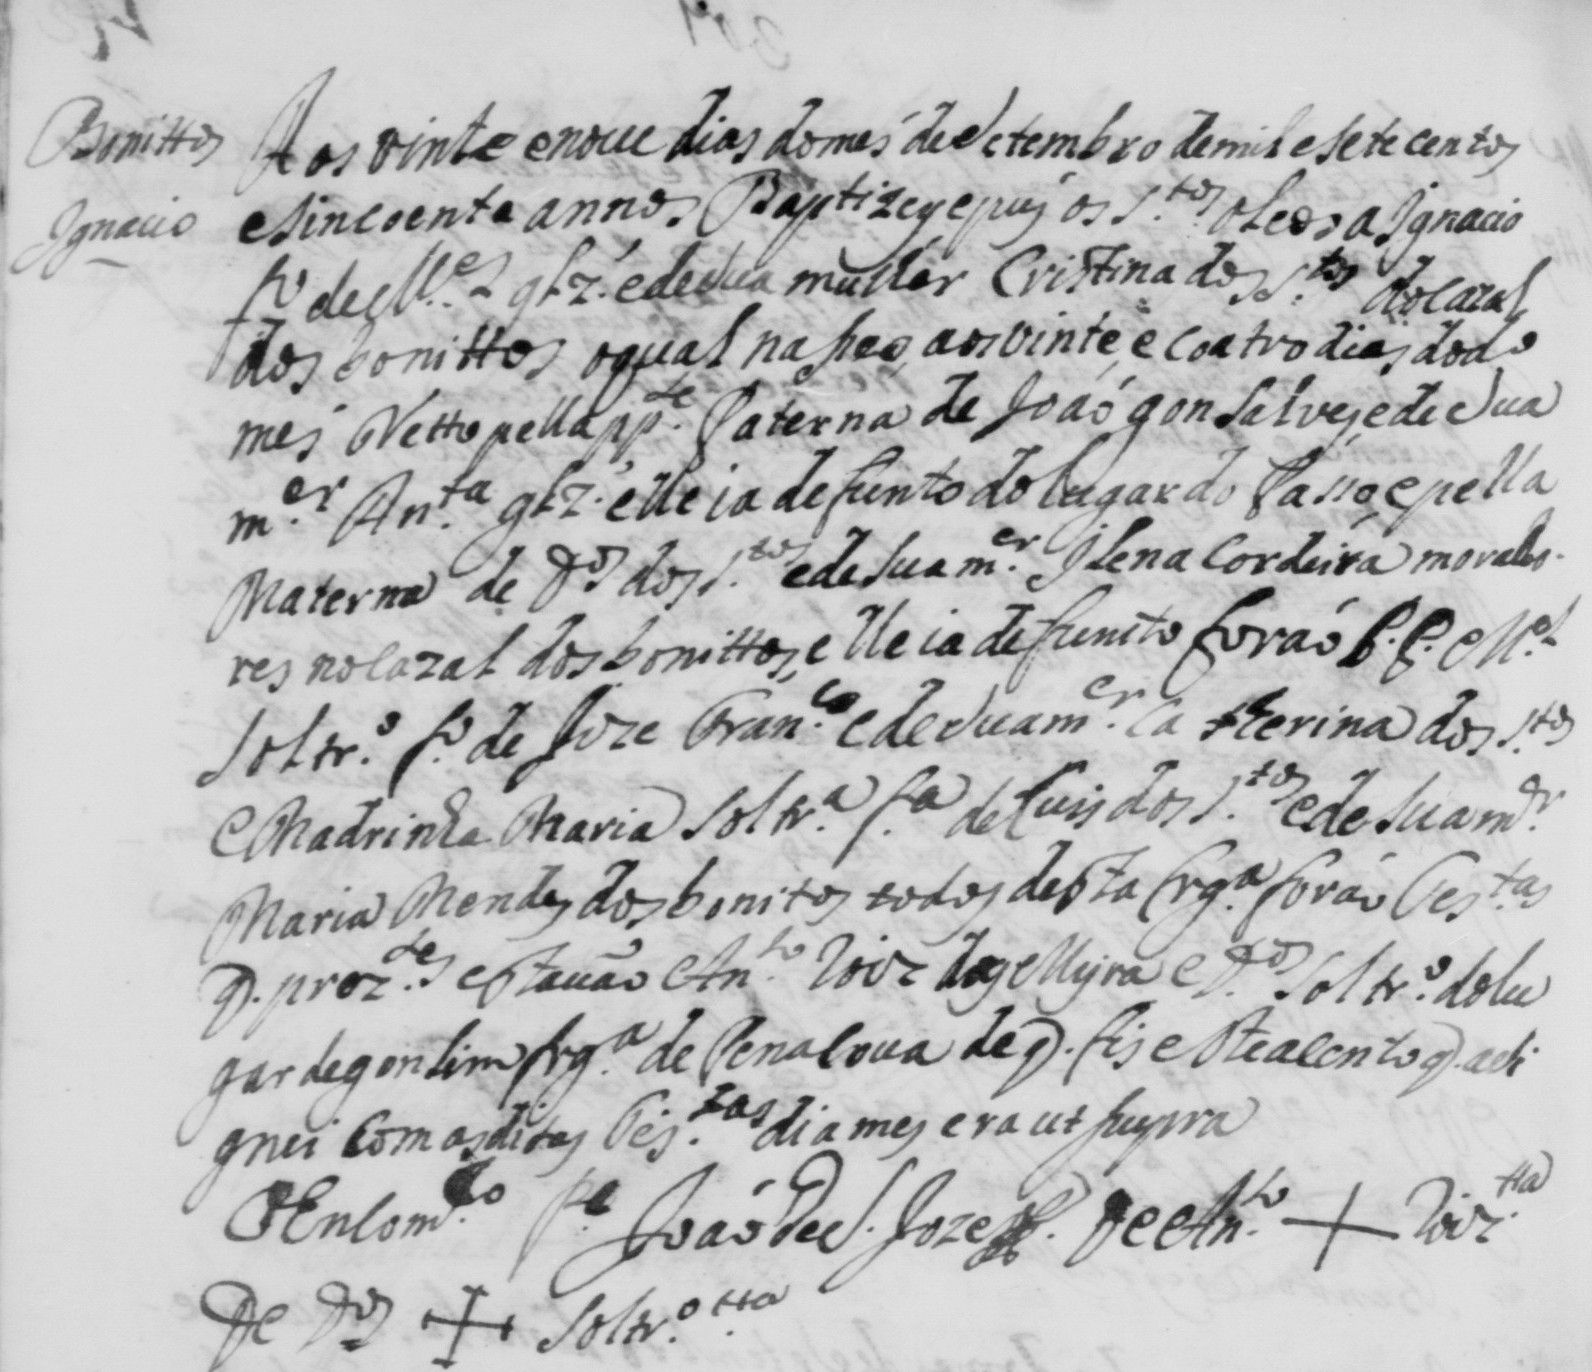 Bonittos
Ignacio
Aos vinte e noue dias do mes de Setembro de mil e sete centos
e sincoenta annos Baptizey e puj os S.tos oleos a Ignacio
f.o de M.el glz. e de sua muller Cristina dos S.tos do cazal
dos bonittos o qual nasceo aos vinte e coatro dias do d.o
mes Netto pella pp.te Paterna de Joaó gonsalves e de sua
m.er An.ta glz. elle ia defunto do lugar do Passo e pella
Materna de D.os dos S.tos e de sua m.er Ilena Cordeira morado-
res no cazal dos bonittos, elle ia defunito foraó P.P. M.el
Soltr.o f.o de Joze Fran.co e de sua m.er Catherina dos S.tos
e Madrinha Maria Soltr.a f.a de Luis dos S.tos e de sua m.er
Maria Mendes dos bonitos todos desta frg.a foraó Tes.tas
q. prez.tes estauaó An.to Roiz da ge e D.os Soltr.o do lu
gar de gondim frg.a de Penacoua de q. fis este acento q. asi
gnei com as ditas Tes.tas dia mes era ut supra
O Encom.do P.e Joaó de S. Jozeph. De An.to + Roiz tta
De D.os + Soltr.o tta